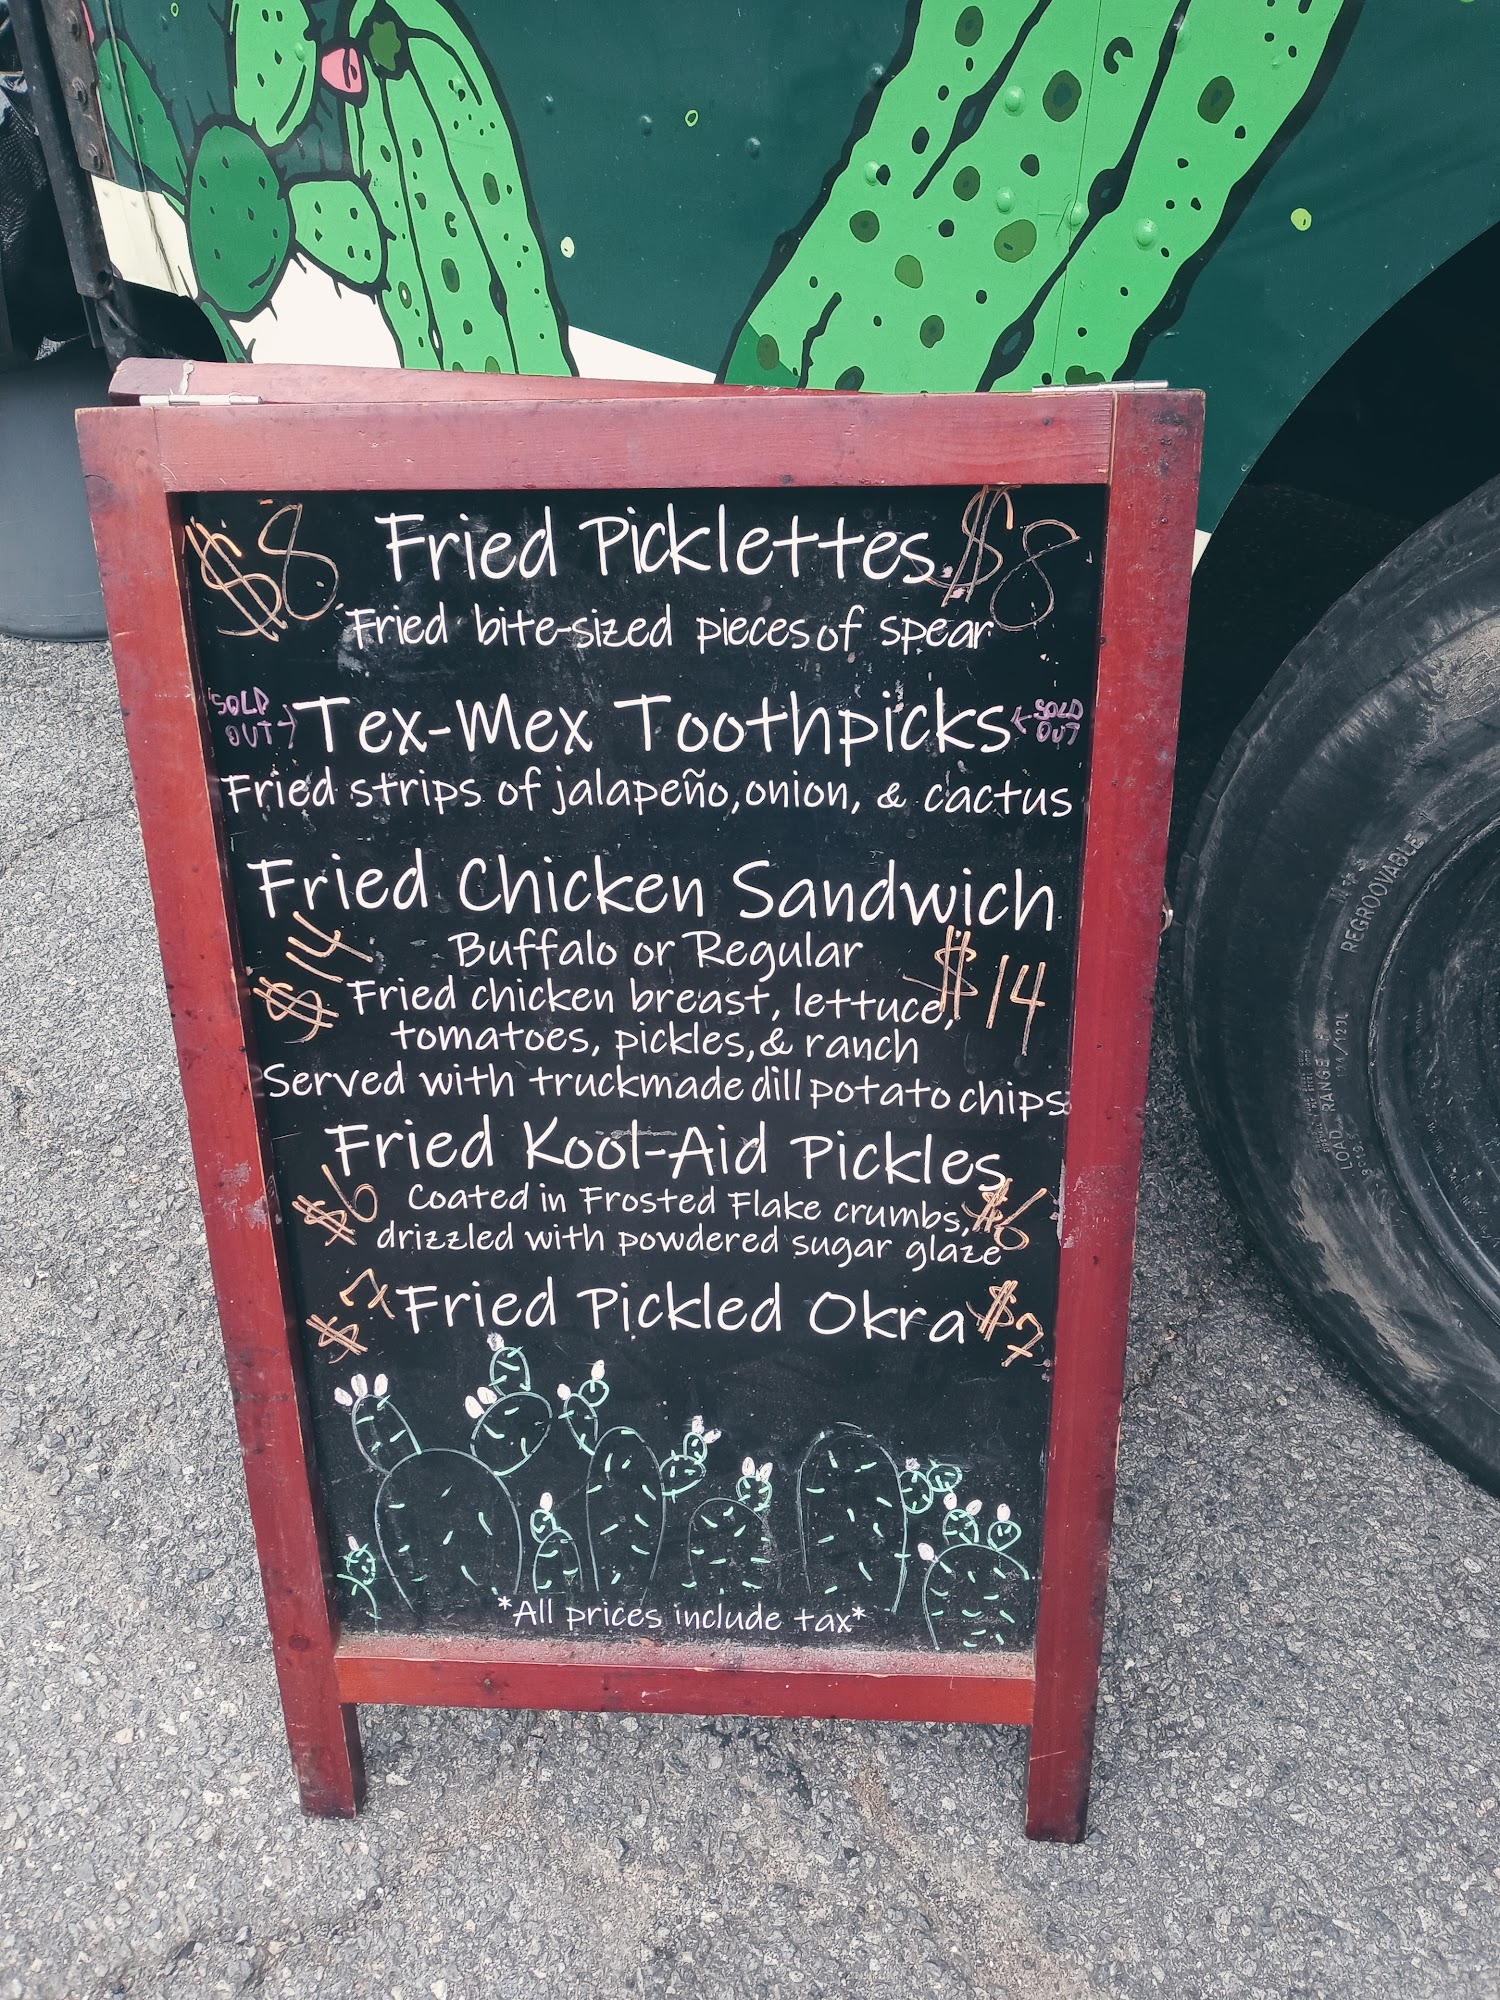 $8 Fried Picklettes $8
Fried bite-sized pieces of spear
SOLD OUT → Tex-Mex Toothpicks ← SOLD OUT
Fried strips of jalapeño, onion, & cactus
Fried Chicken Sandwich
$14 Buffalo or Regular $14
Fried chicken breast, lettuce,
tomatoes, pickles, & ranch
Served with truckmade dill potato chips
Fried Kool-Aid Pickles
$6 Coated in Frosted Flake crumbs, $6
drizzled with powdered sugar glaze
$7 Fried Pickled Okra $7
*All prices include tax*
REGROOVABLE
LOAD RANGE